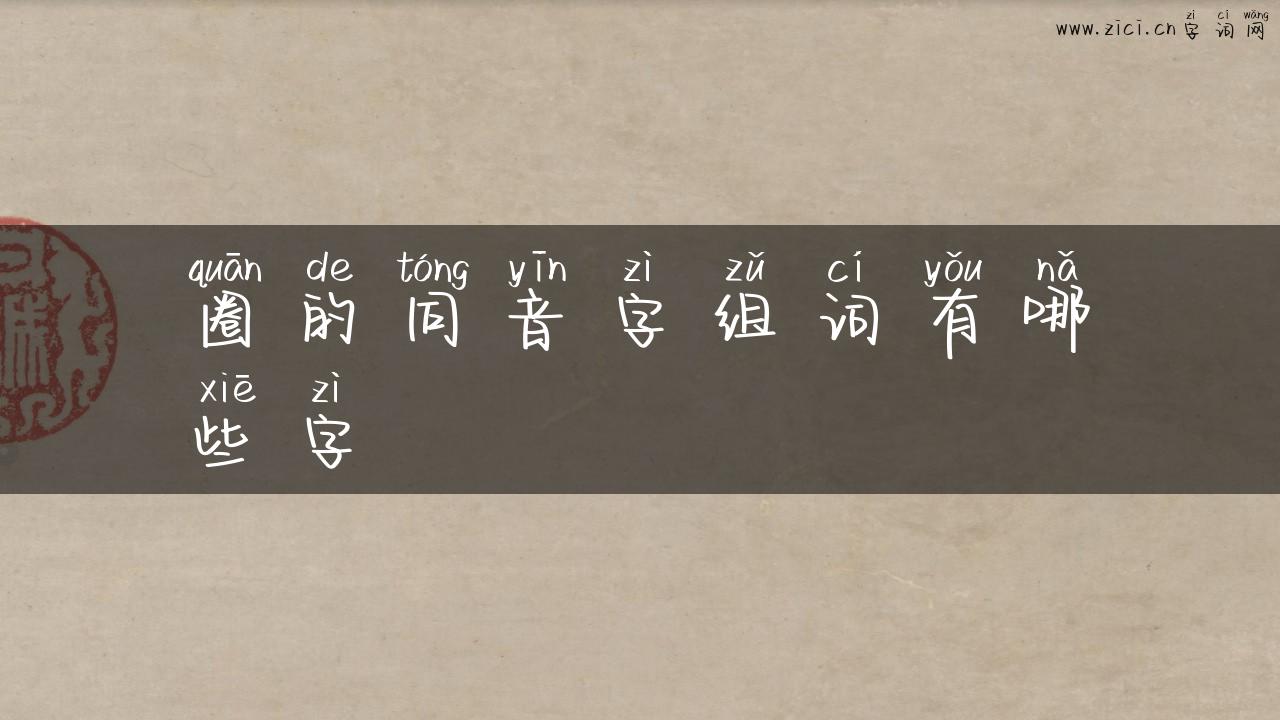 www.zici.cn 字词网
zì cí wǎng
quān de tóng yīn zì zǔ cí yǒu nǎ
圈的同音字组词有哪
xiē zì
些字